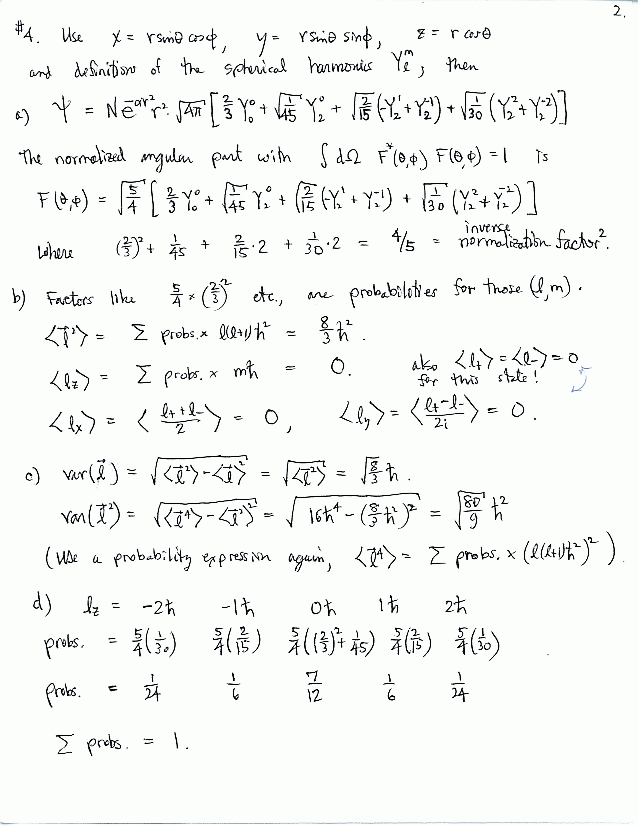 2.
#4. Use x = r sinθ cosφ, y = r sinθ sinφ, z = r cosθ
and definition of the spherical harmonics Y_l^m, then
a) Ψ = N e^{-αr²} r² · √4π [ 2/3 Y_0^0 + √(1/45) Y_2^0 + √(2/15) (-Y_2^1 + Y_2^{-1}) + √(1/30) (Y_2^2 + Y_2^{-2}) ]
The normalized angular part with ∫ dΩ F*(θ,φ) F(θ,φ) = 1 is
F(θ,φ) = √(5/4) [ 2/3 Y_0^0 + √(1/45) Y_2^0 + √(2/15) (-Y_2^1 + Y_2^{-1}) + √(1/30) (Y_2^2 + Y_2^{-2}) ]
where (2/3)² + 1/45 + 2/15 · 2 + 1/30 · 2 = 4/5 = inverse normalization factor².
b) Factors like 5/4 × (2/3)² etc., are probabilities for those (l,m).
<l⃗²> = Σ probs. × l(l+1)ħ² = 8/3 ħ².
<l_z> = Σ probs. × mħ = 0. also <l_+> = <l_-> = 0 for this state!
<l_x> = < (l_+ + l_-)/2 > = 0, <l_y> = < (l_+ - l_-)/2i > = 0.
c) var(l⃗) = √(<l⃗²> - <l⃗>²) = √<l⃗²> = √(8/3) ħ.
var(l⃗²) = √(<l⃗⁴> - <l⃗²>²) = √(16ħ⁴ - (8/3 ħ²)²) = √(80/9) ħ²
(Use a probability expression again, <l⃗⁴> = Σ probs. × (l(l+1)ħ²)²).
d) l_z = -2ħ -1ħ 0ħ 1ħ 2ħ
probs. = 5/4(1/30) 5/4(2/15) 5/4((2/3)² + 1/45) 5/4(2/15) 5/4(1/30)
probs. = 1/24 1/6 7/12 1/6 1/24
Σ probs. = 1.